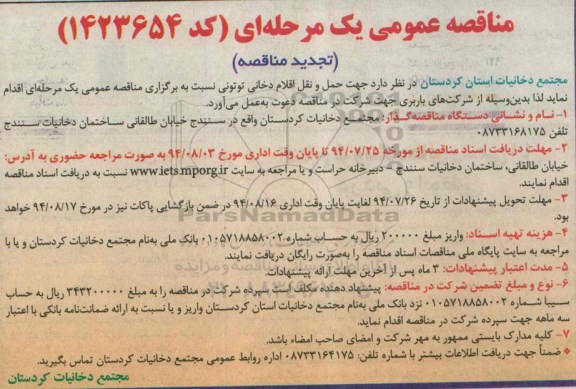 مناقصه عمومی یک مرحله‌ای (کد ۱۴۲۳۶۵۴)
(تجدید مناقصه)
مجتمع دخانیات استان کردستان در نظر دارد جهت حمل و نقل اقلام دخانی توتونی نسبت به برگزاری مناقصه عمومی یک مرحله‌ای اقدام
نماید لذا بدین‌وسیله از شرکت‌های باربری جهت شرکت در مناقصه دعوت به‌عمل می‌آورد.
۱- نام و نشانی دستگاه مناقصه‌گذار: مجتمع دخانیات کردستان واقع در سنندج خیابان طالقانی ساختمان دخانیات سنندج
تلفن ۰۸۷۳۳۱۶۸۱۷۵
۲- مهلت دریافت اسناد مناقصه از مورخه ۹۴/۰۷/۲۵ تا پایان وقت اداری مورخ ۹۴/۰۸/۰۳ به صورت مراجعه حضوری به آدرس:
خیابان طالقانی، ساختمان دخانیات سنندج - دبیرخانه حراست و یا مراجعه به سایت www.iets.mporg.ir نسبت به دریافت اسناد مناقصه
اقدام نمایند.
۳- مهلت تحویل پیشنهادات از تاریخ ۹۴/۰۷/۲۶ لغایت پایان وقت اداری ۹۴/۰۸/۱۶ در ضمن بازگشایی پاکات نیز در مورخ ۹۴/۰۸/۱۷ خواهد
بود.
۴- هزینه تهیه اسناد: واریز مبلغ ۲۰۰۰۰۰ ریال به حساب شماره ۰۱۰۵۷۱۸۸۵۸۰۰۲ بانک ملی به‌نام مجتمع دخانیات کردستان و یا با
مراجعه به سایت پایگاه ملی مناقصات اسناد مناقصه را به‌صورت رایگان دریافت نمایند.
۵- مدت اعتبار پیشنهادات: ۳ ماه پس از آخرین مهلت ارائه پیشنهادات.
۶- نوع و مبلغ تضمین شرکت در مناقصه: پیشنهاد دهنده مکلف است سپرده شرکت در مناقصه را به مبلغ ۳۴۳۲۰۰۰۰۰ ریال به حساب
سیبا شماره ۰۱۰۵۷۱۸۸۵۸۰۰۲ نزد بانک ملی به‌نام مجتمع دخانیات استان کردستان واریز و یا نسبت به ارائه ضمانت‌نامه بانکی با اعتبار
سه ماهه جهت سپرده شرکت در مناقصه اقدام نماید.
۷- کلیه مدارک بایستی ممهور به مهر شرکت و امضای صاحب امضاء باشد.
❖ ضمناً جهت دریافت اطلاعات بیشتر با شماره تلفن: ۰۸۷۳۳۱۶۴۱۷۵ اداره روابط عمومی مجتمع دخانیات کردستان تماس بگیرید.
مجتمع دخانیات کردستان
ParsNamadData